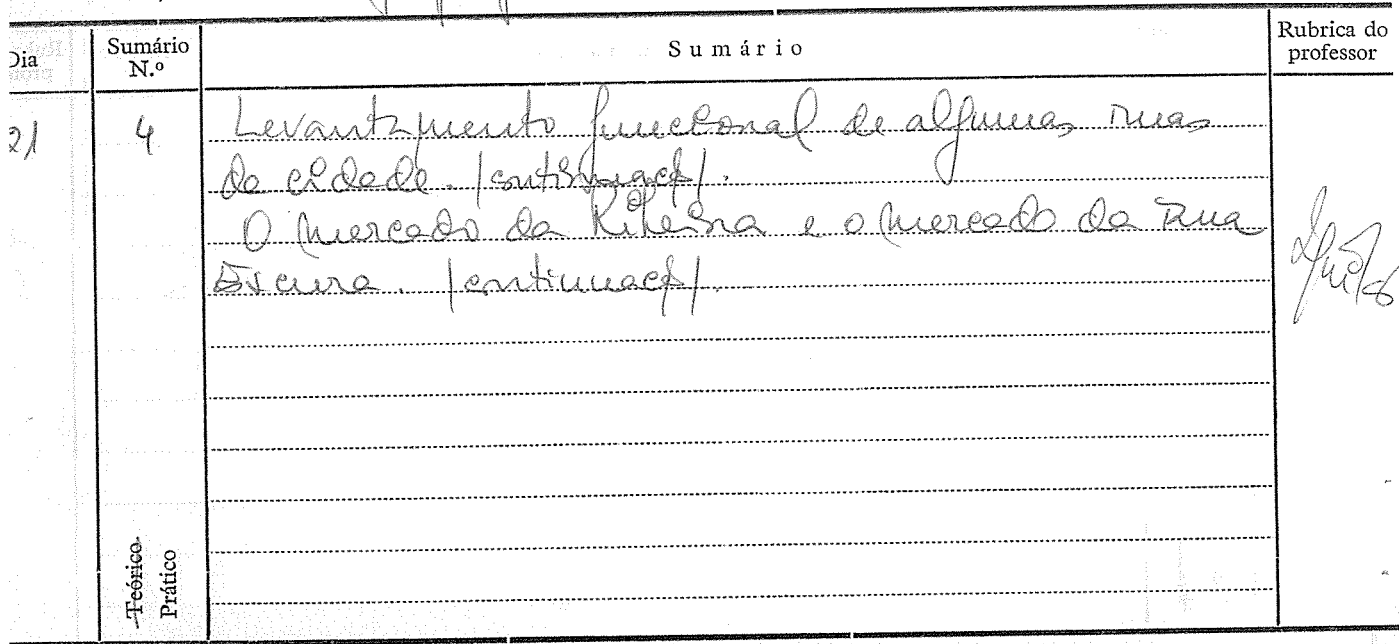 Dia
Sumário N.º
Sumário
Rubrica do professor
21
4
Levantamento funcional de algumas ruas
da cidade. /continuaçº/.
O mercado da Ribeira e o mercado da rua
Escura. /continuaçº/.
Teórico
Prático